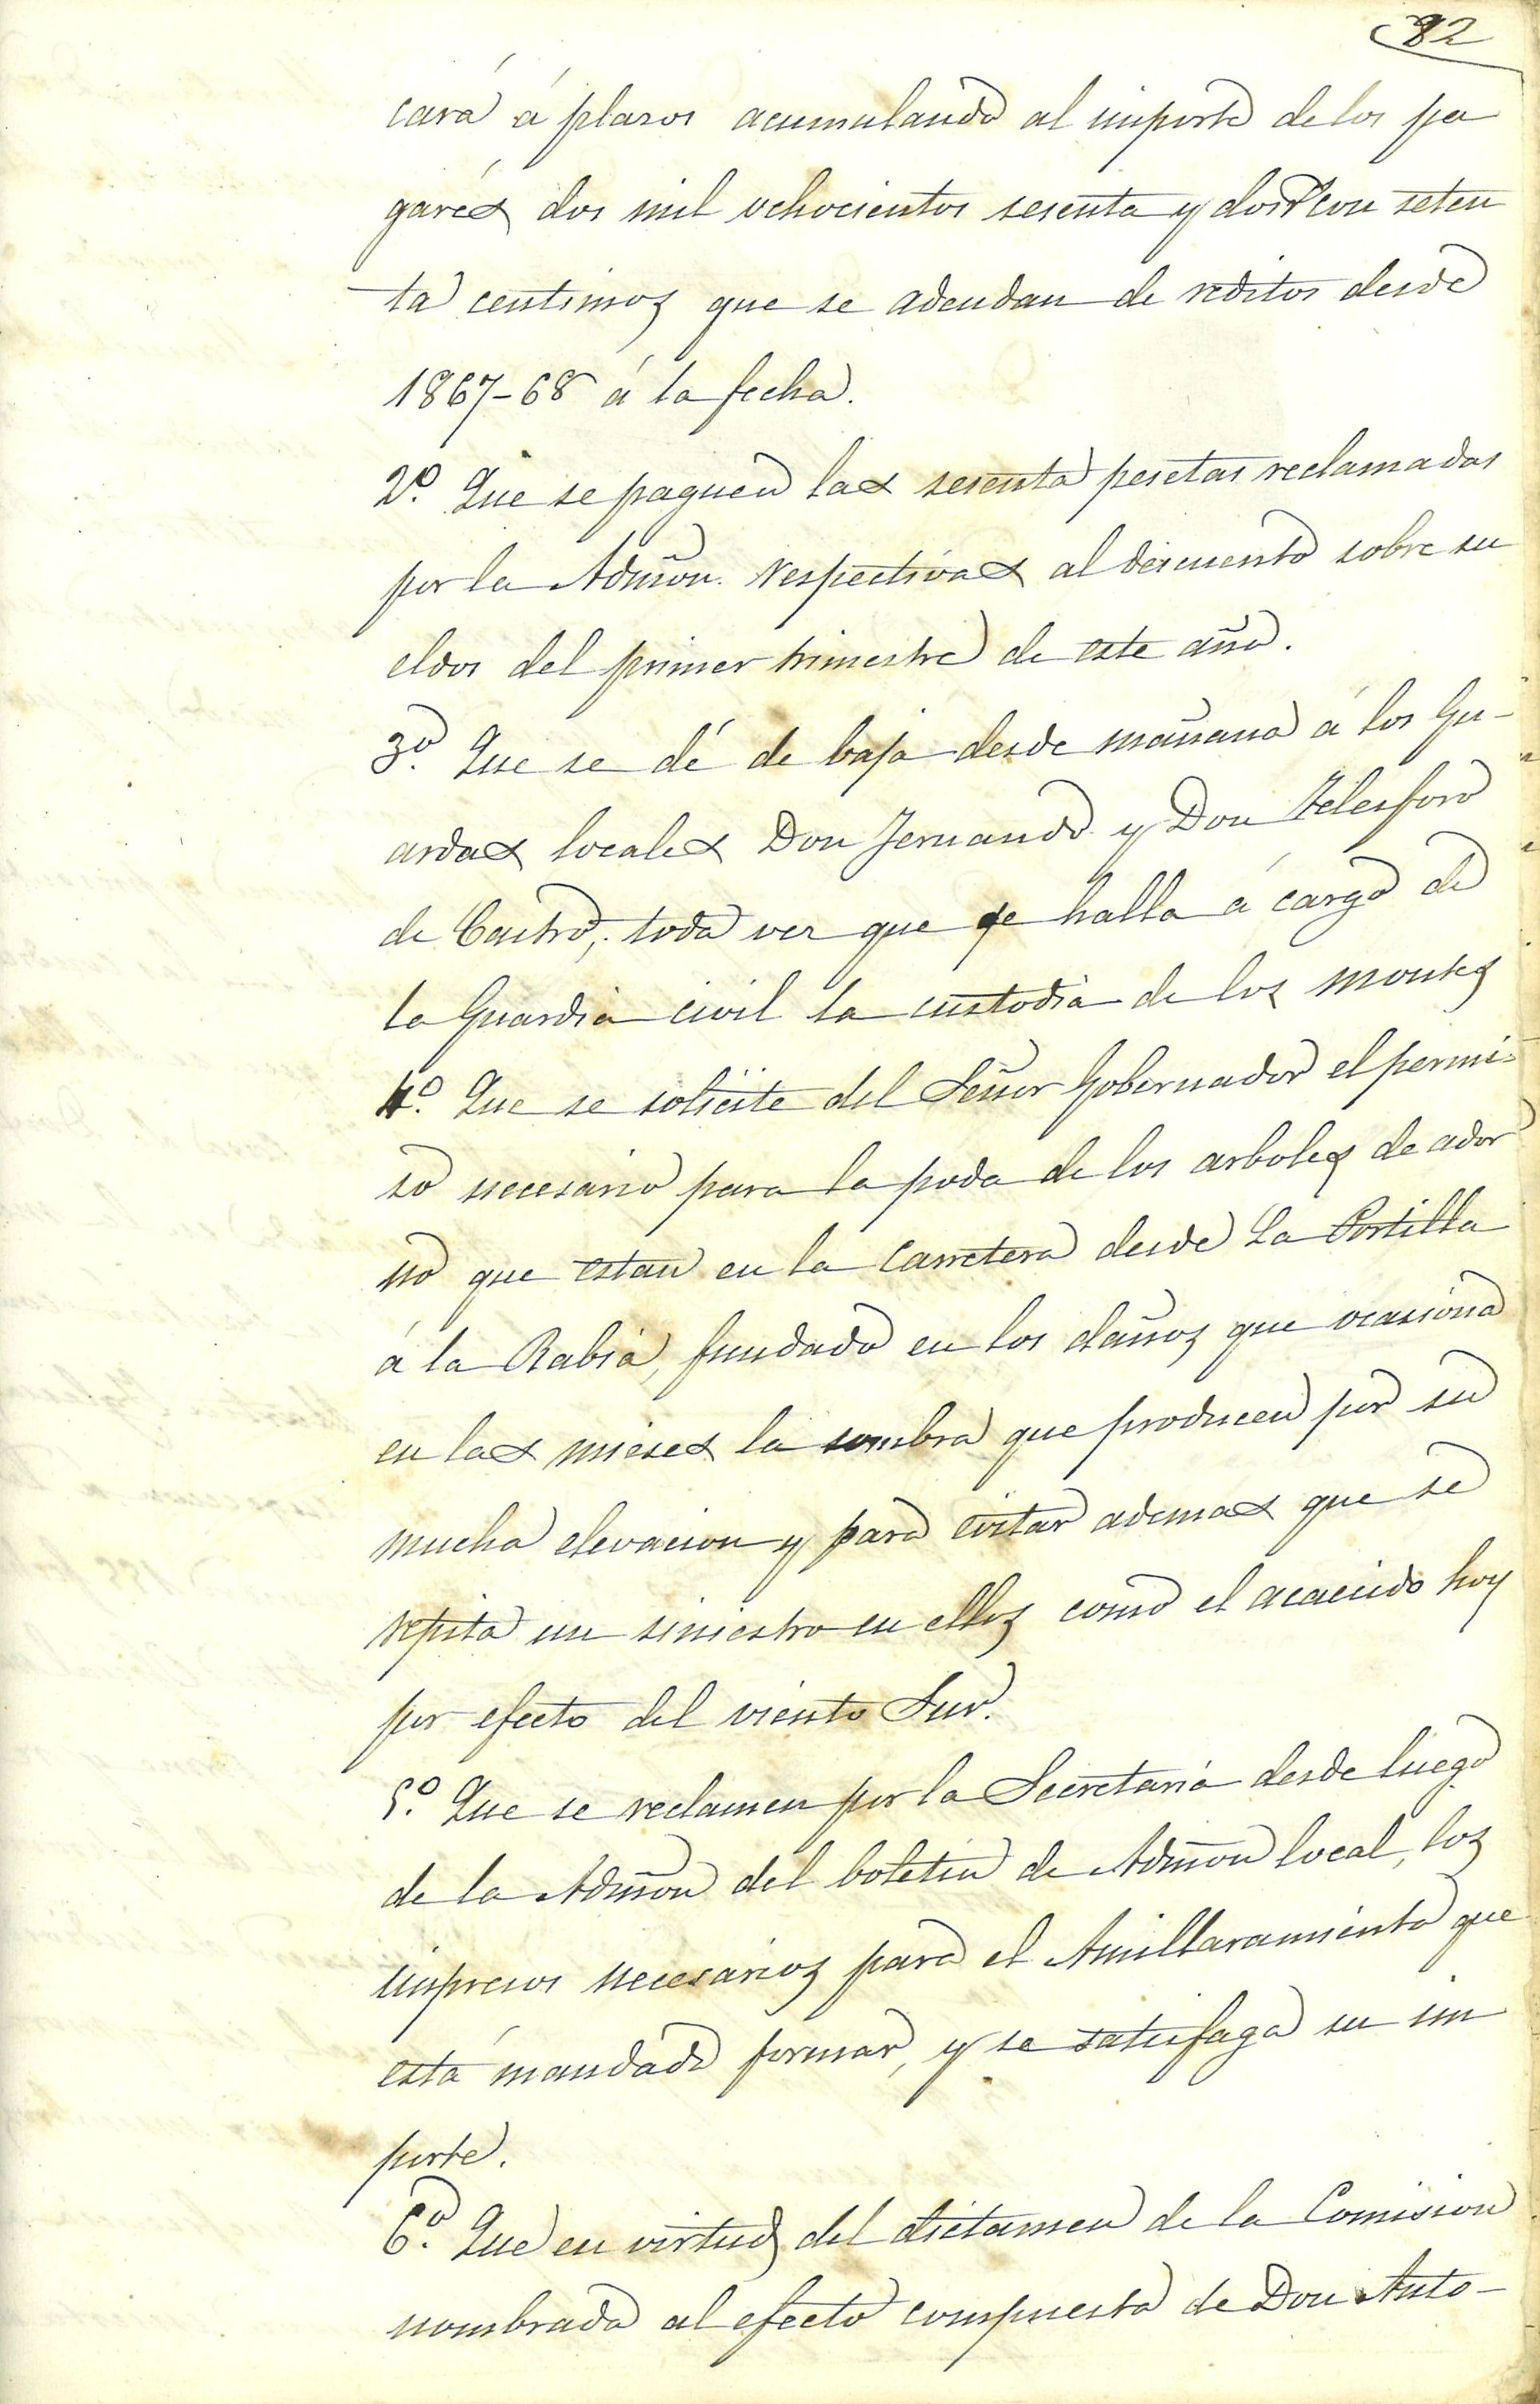 82
cará á plazos acumulando al importe de los pa
garés dos mil ochocientos sesenta y dos con seten
ta centimos que se adeudan de reditos desde
1867-68 á la fecha.
2º. Que se paguen las sesenta pesetas reclamadas
por la Admõn. respectivas al descuento sobre su
eldos del primer trimestre de este año.
3º. Que se dé de baja desde mañana á los Gu-
ardas locales Don Fernando y Don Telesforo
de Castro, toda vez que se halla á cargo de
la Guardia civil la custodia de los montes
4º. Que se solicite del Señor Gobernador el permi-
so necesario para la poda de los arboles de ador
no que estan en la Carretera desde La Portilla
á la Rabia, fundado en los daños que ocasiona
en las mieses la sombra que producen por su
mucha elevacion y para evitar ademas que se
repita un siniestro en ellos como el acaecido hoy
por efecto del viento Sur.
5º. Que se reclamen por la Secretaria desde luego
de la Admõn del boletin de Admõn local, los
impresos necesarios para el Amillaramiento que
está mandado formar, y se satisfaga su im
porte.
6º. Que en virtud del dictamen de la Comision
nombrada al efecto compuesta de Don Anto-